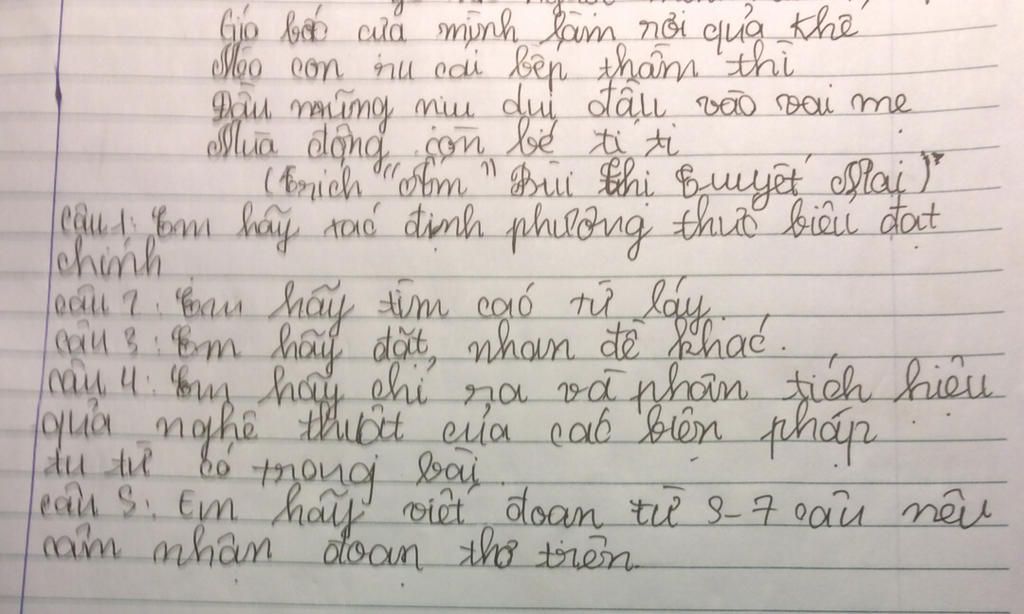 Gió bấc của mình làm nơi quả khế
Mèo con ru cái bếp thầm thì
Đầu những níu dụi đầu vào vai mẹ
Mùa đông còn bé tí ti
(Trích "Ốm" Bùi Thị Tuyết Mai)"
câu 1: Em hãy xác định phương thức biểu đạt
chính
câu 2: Em hãy tìm các từ láy.
câu 3: Em hãy đặt nhan đề khác.
câu 4: Em hãy chỉ ra và phân tích hiệu
quả nghệ thuật của các biện pháp
tu từ có trong bài.
câu 5: Em hãy viết đoạn từ 5-7 câu nêu
cảm nhận đoạn thơ trên.